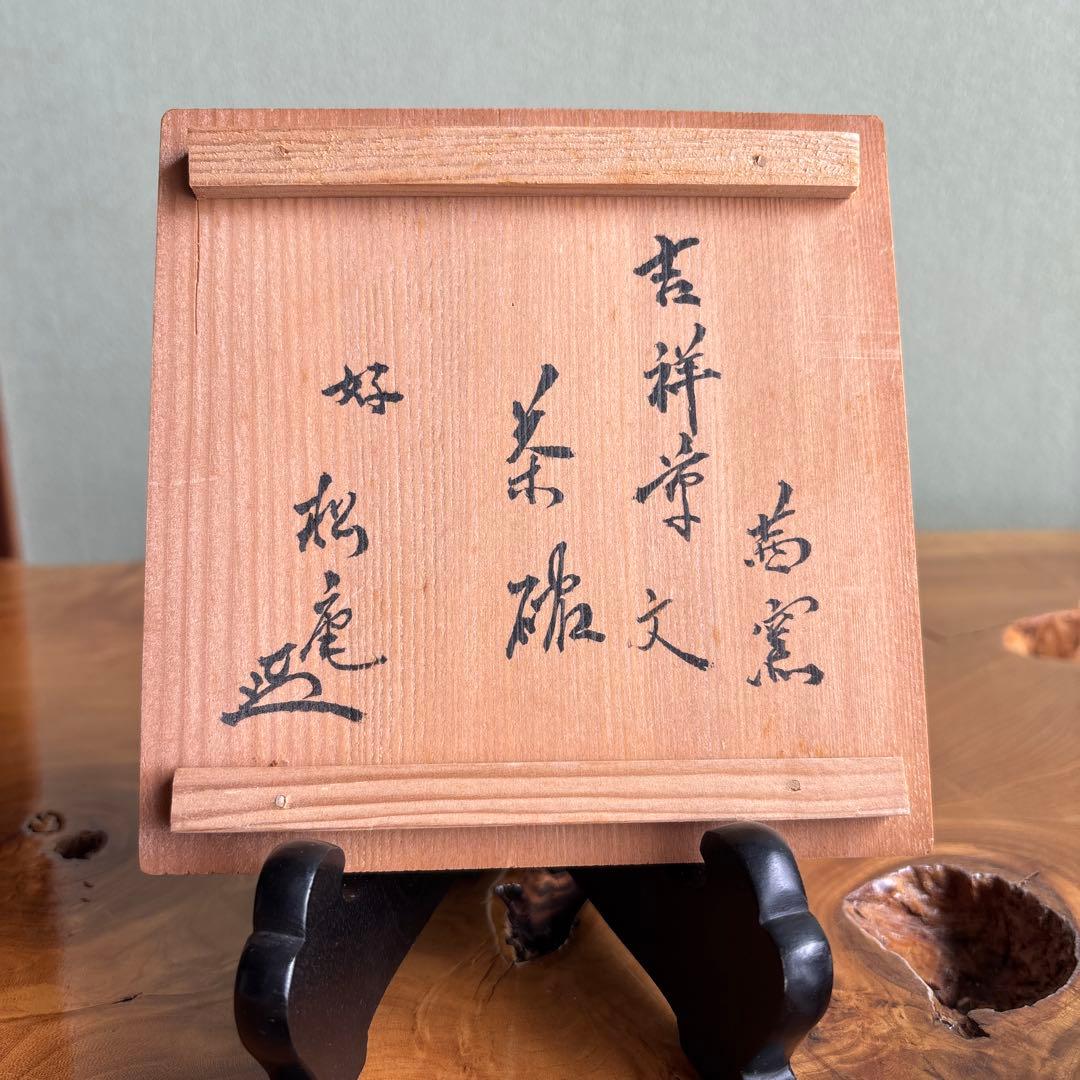 茜窯
吉祥草文
茶碗
好 松庵